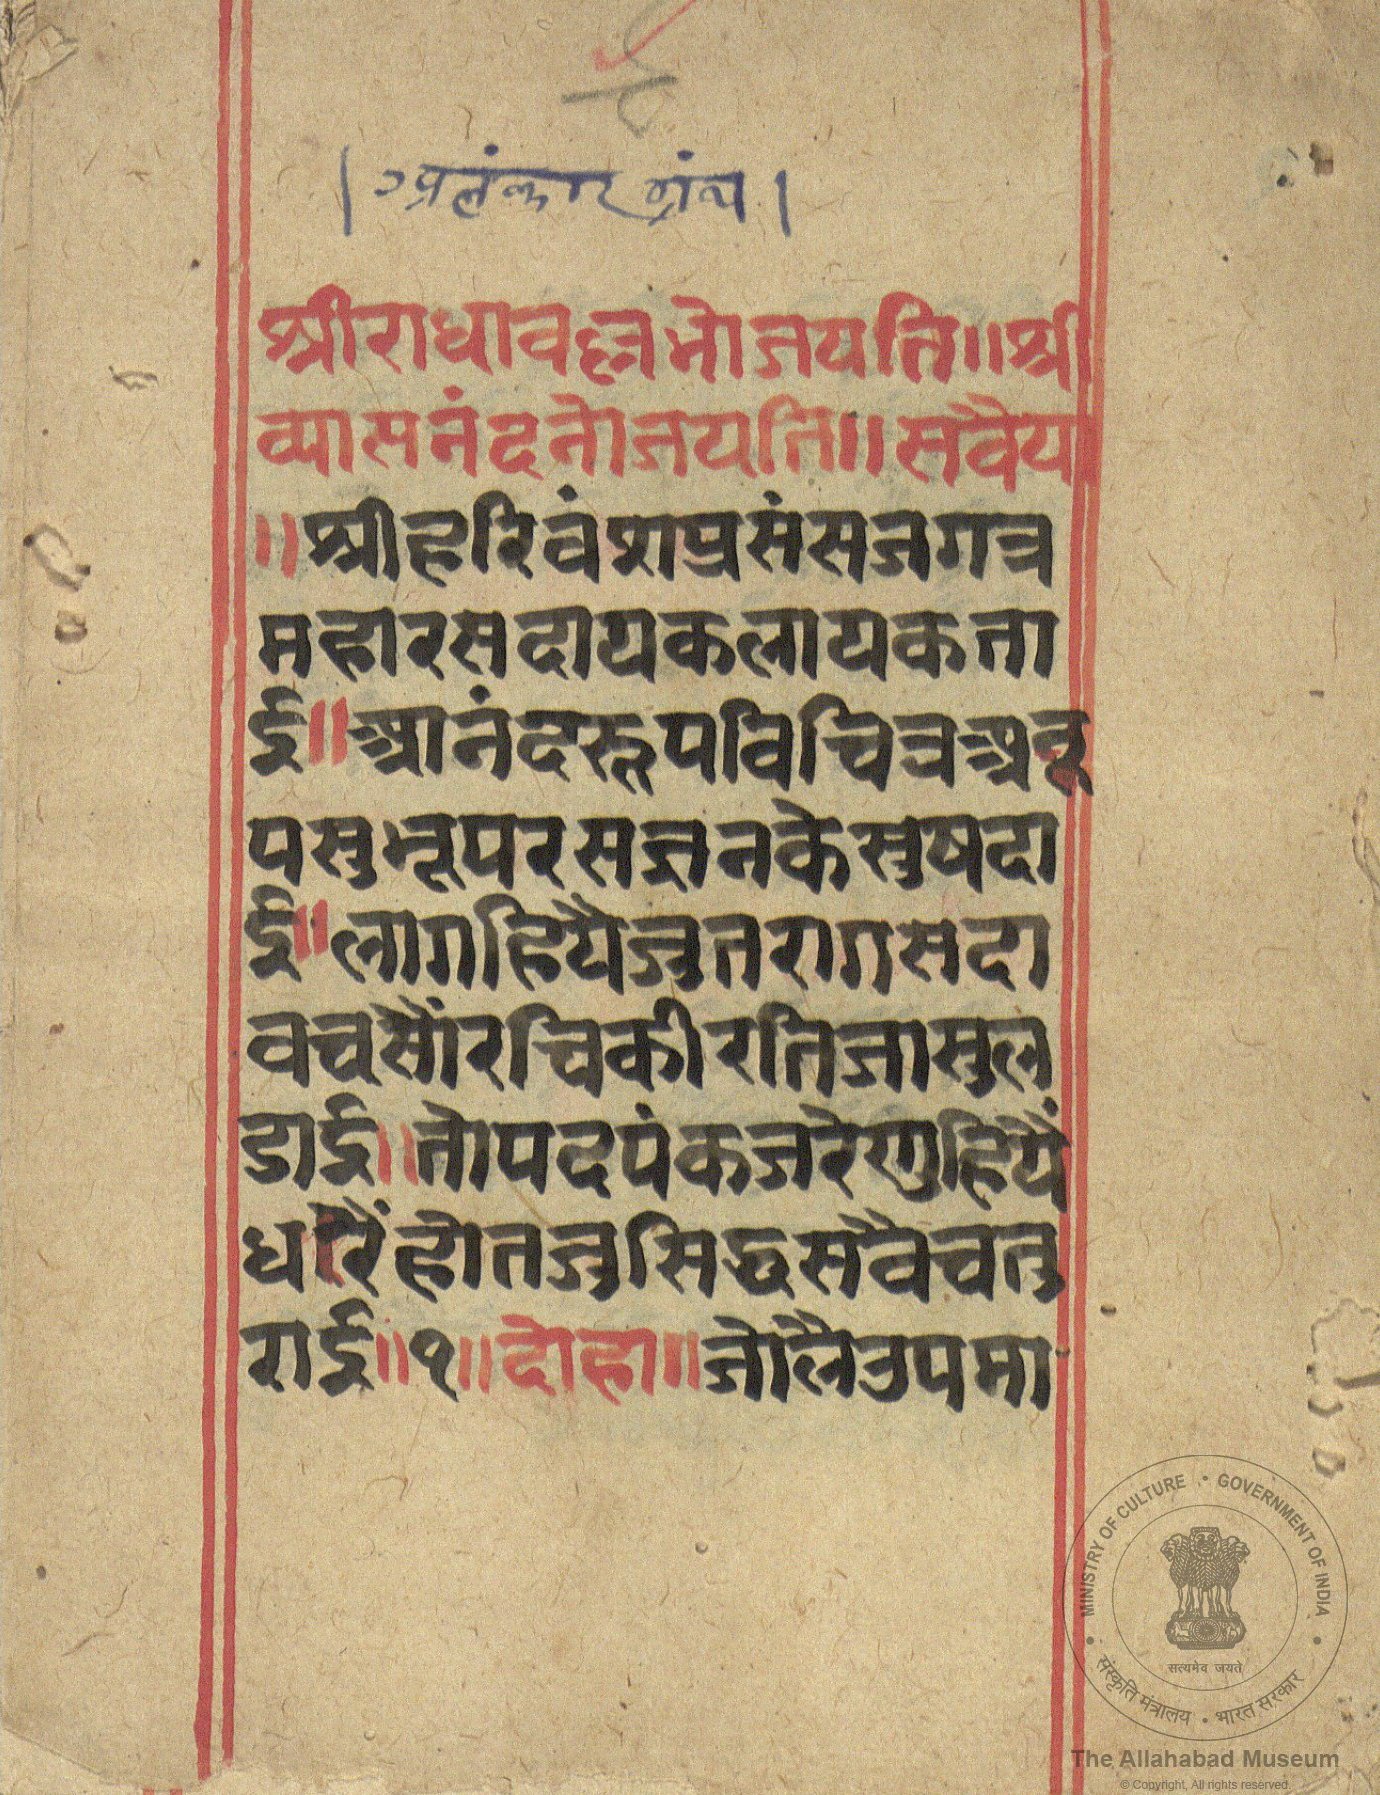 । अलंकार ग्रंथ ।
श्रीराधावल्लभोजयति॥श्री
व्यासनंदनोजयति॥सवैया
॥श्रीहरिवंशप्रसंसजगत्र
महारसदायकलायकता
ई॥आनंदरूपविचित्रअनू
पसुभूपरसज्ञनकेसुषदा
ई॥लागहियैजुतरागसदा
वचसौंरचिकीरतिजासुल
डाई॥तोपदपंकजरेणुहियैं
धारैंहोतजुसिद्धसवैचतु
राई॥१॥दोहा॥जोलैउपमा
MINISTRY OF CULTURE • GOVERNMENT OF INDIA
सत्यमेव जयते
संस्कृति मंत्रालय • भारत सरकार
The Allahabad Museum
© Copyright, All rights reserved.